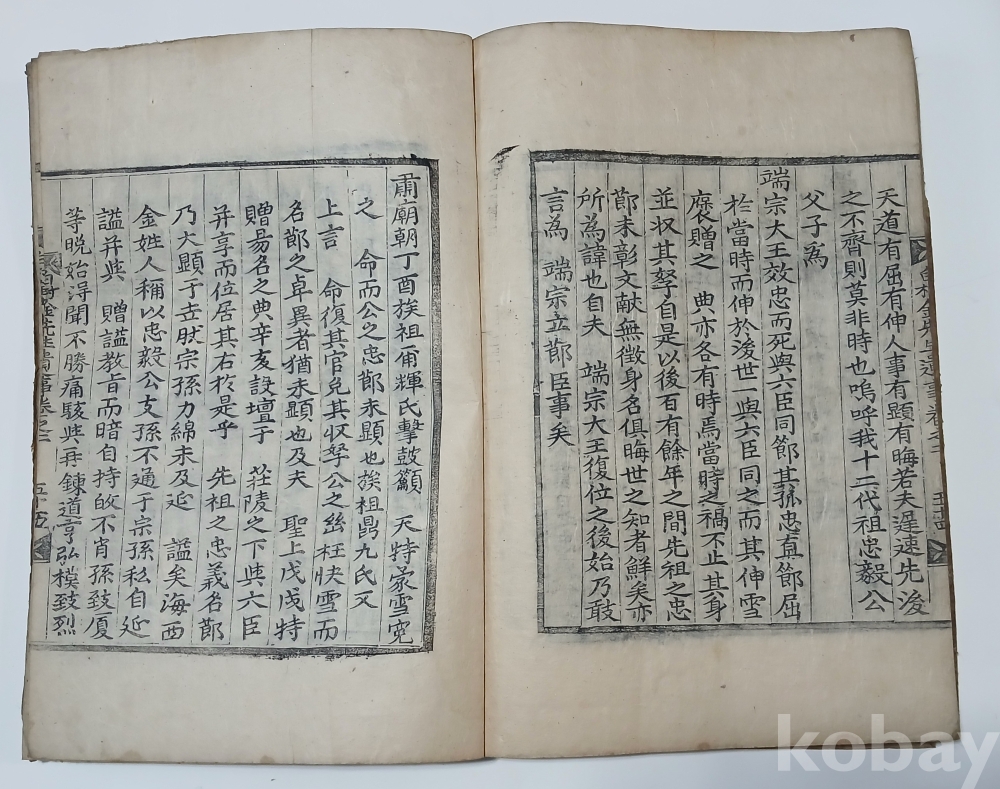 天道有屈有伸人事有顯有晦若夫遲速先後
之不齊則莫非時也嗚呼我十二代祖忠毅公
父子為
端宗大王效忠而死與六臣同節其孤忠直節屈
於當時而伸於後世一與六臣同之而其伸雪
褒贈之 典亦各有時焉當時之禍不止其身
並收其孥自是以後百有餘年之間先祖之忠
節未彰文献無徵身名俱晦世之知者鮮矣亦
所為諱也自夫 端宗大王復位之後始乃敢
言為 端宗立節臣事矣
肅廟朝丁酉族祖甭輝氏擊鼓籲 天特蒙雪寃
之 命而公之忠節未顯也族祖鼎九氏又
上言 命復其官免其収孥公之幽枉快雪而
名節之卓異者猶未顯也及夫 聖上戊戌特
贈易名之典辛亥設壇于 莊陵之下與六臣
并享而位居其右於是乎 先祖之忠義名節
乃大顯于世然宗孫力綿未及延 謚矣海西
金姓人稱以忠毅公支孫不通于宗孫私自延
謚并與 贈謚教旨而暗自持故不肖孫致厦
等晚始得聞不勝痛駭與再鍊道亨弘模致烈
kobay